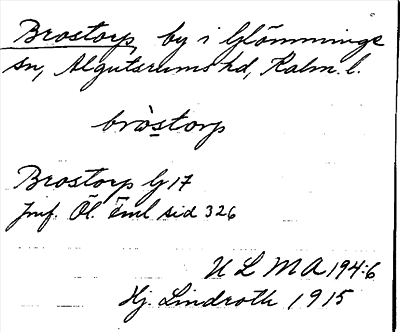 Brostorp, by i Glömminge
sn, Algutsrums hd, Kalm. l.
bròstorp
Brostorp G 17
Jmf. Öl. Eml sid 326
ULMA 194:6
Hj. Lindroth 1915